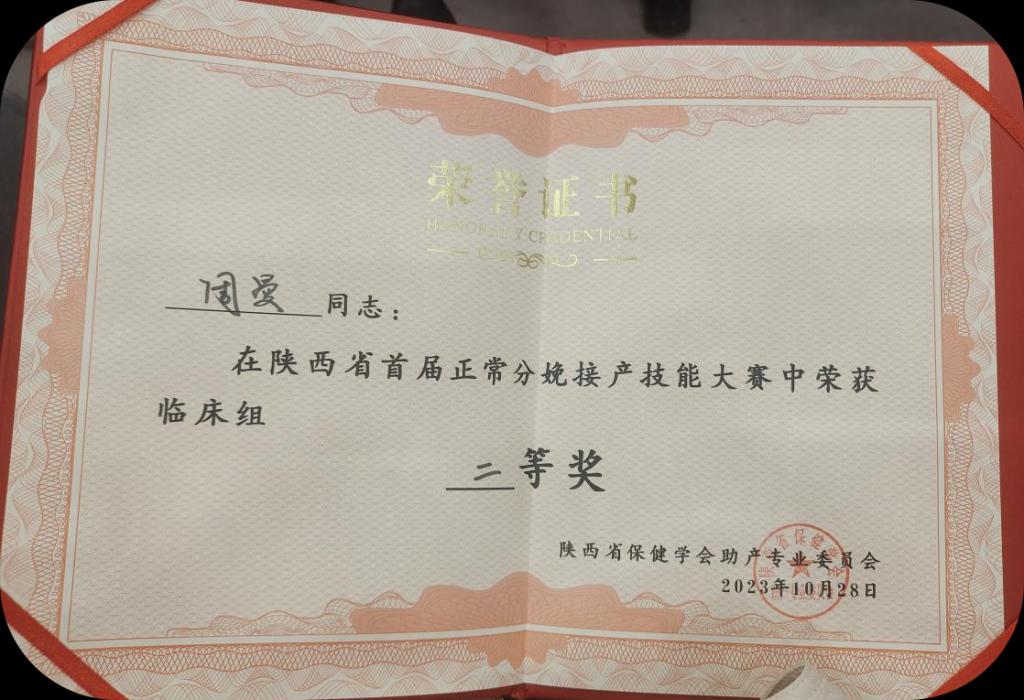 荣誉证书
HONORARY CREDENTIAL
周曼 同志：
在陕西省首届正常分娩接产技能大赛中荣获
临床组
二等奖
陕西省保健学会助产专业委员会
2023年10月28日